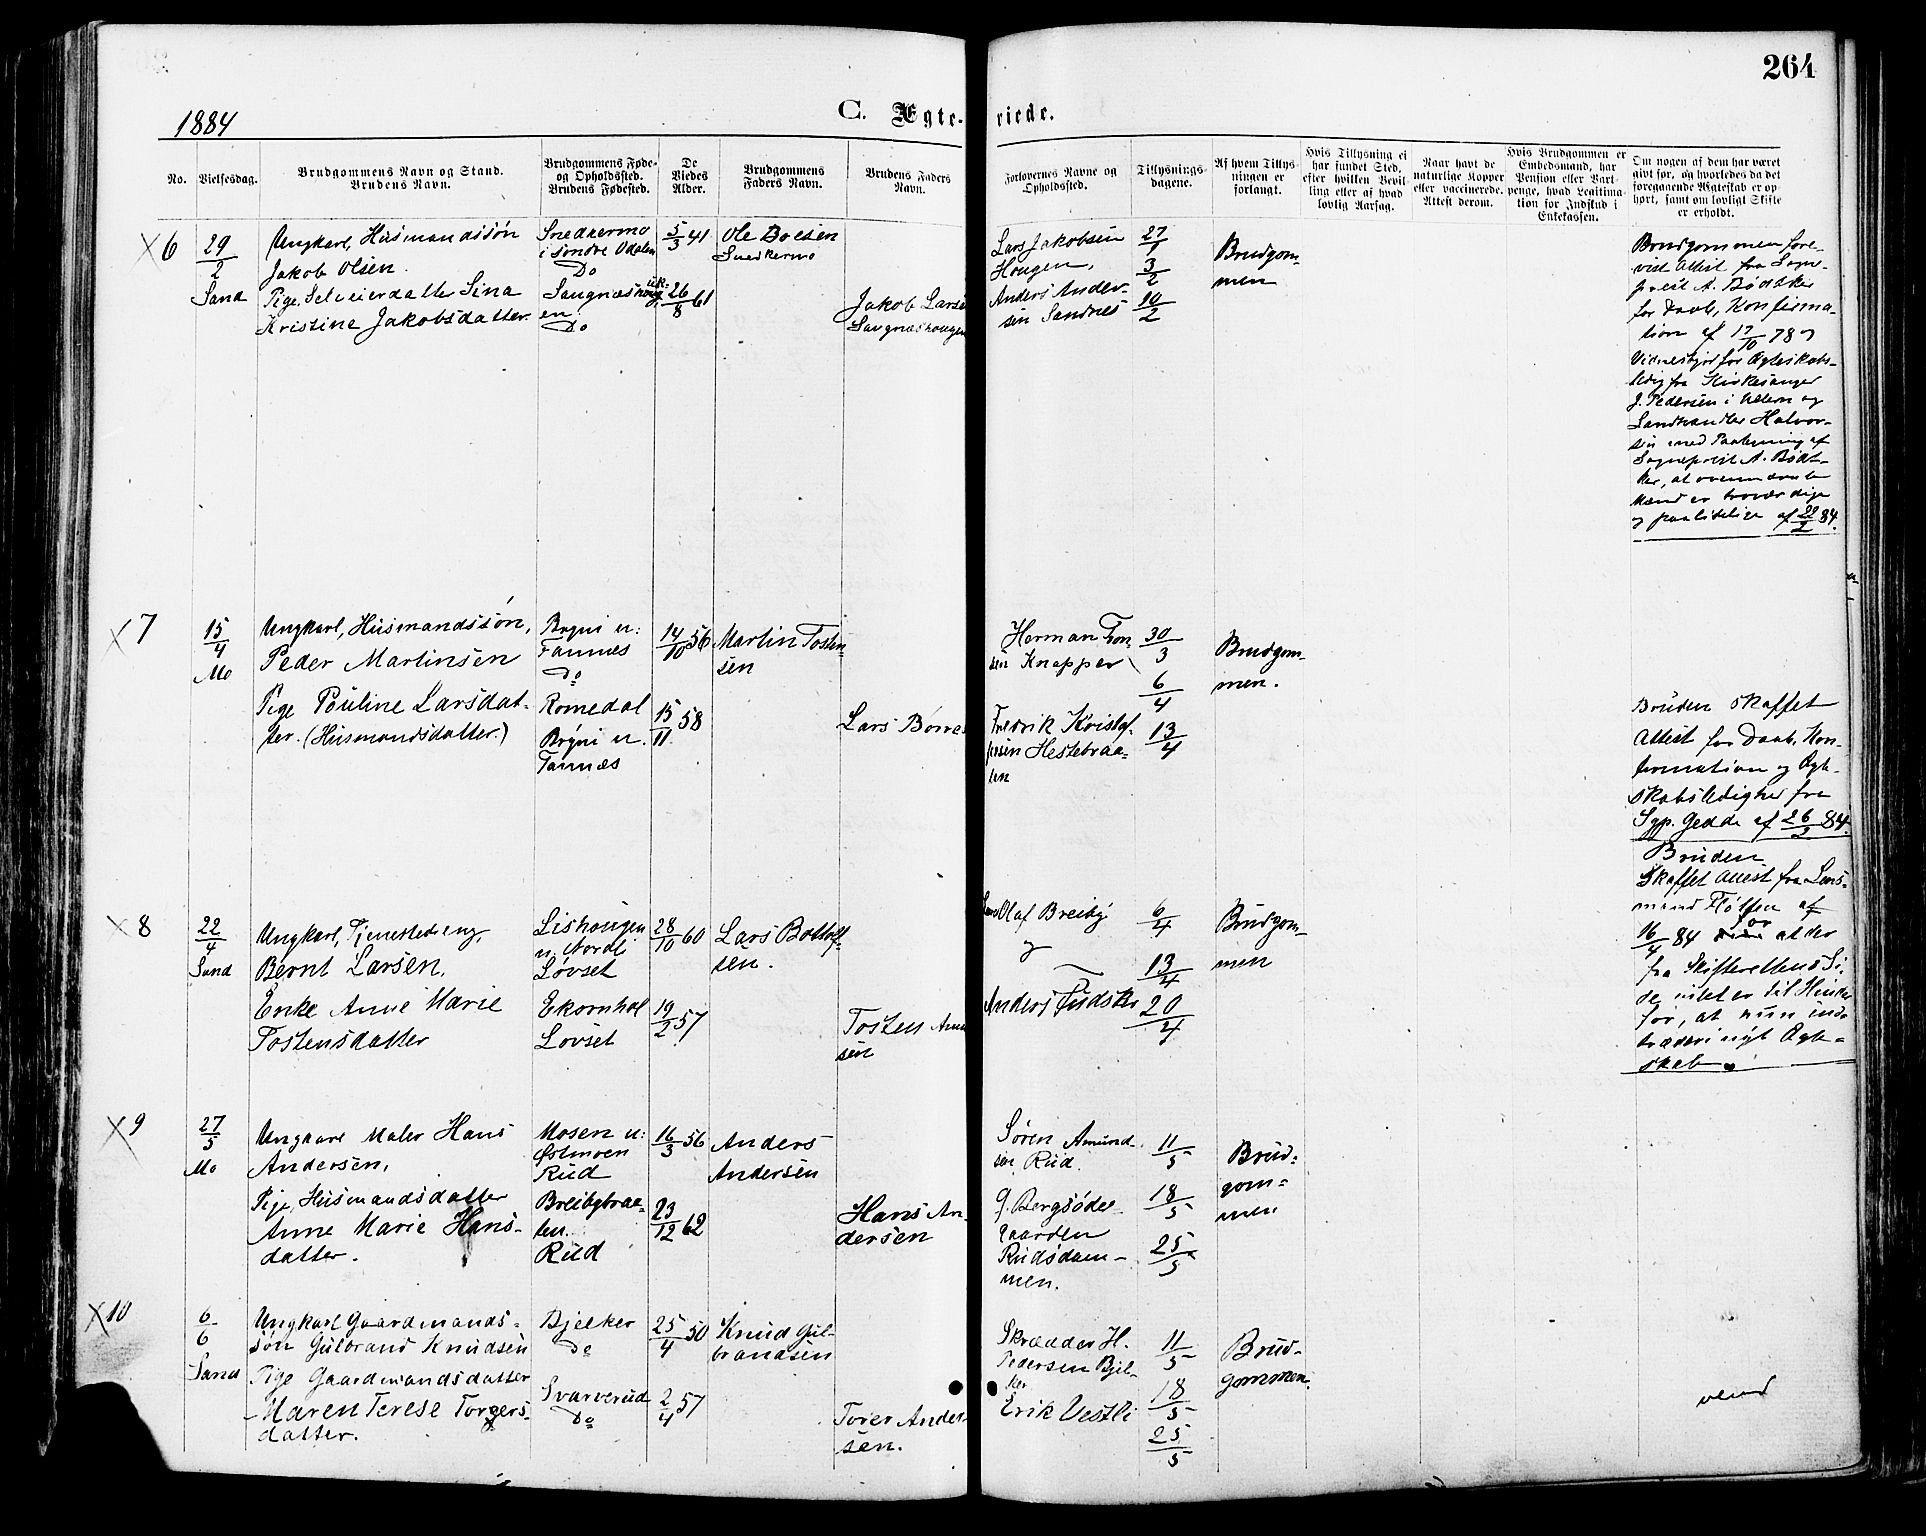 264
1884
C. Ægte-
viede.
No.
Vielsesdag.
Brudgommens Navn og Stand.
Brudens Navn.
Brudgommens Føde-
og Opholdssted.
Brudens Fødested.
De
Viedes
Alder.
Brudgommens
Faders Navn.
Brudens Faders
Navn.
Forlovernes Navne og
Opholdssted.
Tillysnings-
dagene.
Af hvem Tillys-
ningen er
forlangt.
Hvis Tillysning ei
har fundet Sted,
efter hvilken Bevil-
ling eller af hvad
lovlig Aarsag.
Naar havt de
naturlige Kopper
eller vaccinerede.
Attest derom.
Hvis Brudgommen er
Embedsmand, har
Pension eller Vart-
penge, hvad Legitima-
tion for Indskud i
Enkekassen.
Om nogen af dem har været
givt før, og hvorledes da det
foregaaende Ægteskab er op-
hørt, samt om lovligt Skifte
er erholdt.
X 6
29/2
Sand
Ungkarl, Husmandssøn
Jakob Olsen.
Pige, Selveierdatter Sina
Kristine Jakobsdatter.
Snedkermo
i søndre Odalen
Do
Saugnæshoug
en
Do
5/3 41
26/8 61
Ole Boesen
Snedkermo
Jakob Larse
Saugnæshougen
Lars Jakobsen
Hougen,
Anders Ander-
sen Sandnes
27/1
3/2
10/2
Brudgom-
men
Brudgommen fore-
vist Attest fra Sogne-
prest A. Bødtker
for Daab, Konfirma-
tion af 17/10 78 og
Vidnesbyrd for Ægteskabs-
ledig fra Kirkesanger
J. Pedersen i Ullern og
Landhandler Halvor-
sen med Paategning af
Sogneprest A. Bødt-
ker, at ovennævnte
Mænd er troværdige
og paalidelige af 22/2 84.
X 7
15/4
Mo
Ungkarl, Husmandssøn,
Peder Martinsen
Pige Pauline Larsdat-
ter. (Husmandsdatter.)
Bryni u:
Tannæs
Do
Romedal
Bryni u.
Tannæs
14/10 56
15/11 58
Martin Tosten-
sen
Lars Børres
Herman Tron-
sen Knapper
Fredrik Kristof-
fersen Hestebraa-
ten
30/3
6/4
13/4
Brudgom-
men.
Bruden skaffet
Attest for Daab, Kon-
firmation og Ægte-
skabsledighed fra
Sgp. Gedde af 26/2 84.
X 8
22/4
Sand
Ungkarl, Tjenestedreng,
Bernt Larsen,
Enke Anne Marie
Tostensdatter
Lishougen
u. Nordli
Løvset
Ekornhol
Løvset
28/10 60
19/2 57
Lars Bottolf-
sen.
Tosten Amund
sen
Olaf Breiby
og
Anders
6/4
13/4
20/4
Brudgom-
men
Bruden
skaffet Attest fra Lens-
mand Fløtten af
16/4 84 for at der
fra Skifterettens Si-
de intet er til Hinder
for, at hun ind-
træder i nyt Ægte-
skab.
X 9
27/5
Mo
Ungkarl Maler Hans
Andersen,
Pige, Husmandsdatter
Anne Marie Hans-
datter.
Mosen u:
Østmoen
Rud
Breibybraa-
ten.
Rud
16/3 56
23/12 62
Anders
Andersen
Hans An-
dersen
Søren Amund-
sen Rud.
G. Bergsøde-
gaarden
Rudsdam-
men.
11/5
18/5
25/5
Brud-
gom-
men
X 10
6/6
Sand
Ungkarl Gaardmands-
søn Gulbrand Knudsen
Pige Gaardmandsdatter
Maren Terese Torgers-
datter.
Bjelker
Do
Svarverud
Do
25/4 50
2/4 57
Knud Gul-
brandsen
Torer Ander-
sen.
Skrædder H.
Pedersen Bjel-
ker
Erik Vestli
11/5
18/5
25/5
Brud-
gommen.
vend